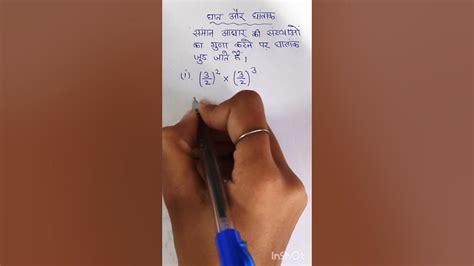 घात और घातांक
समान आधार की संख्याओं
का गुणा करने पर घातांक
जुड़ जाते हैं।
(i) (3/2)² × (3/2)³
InShot